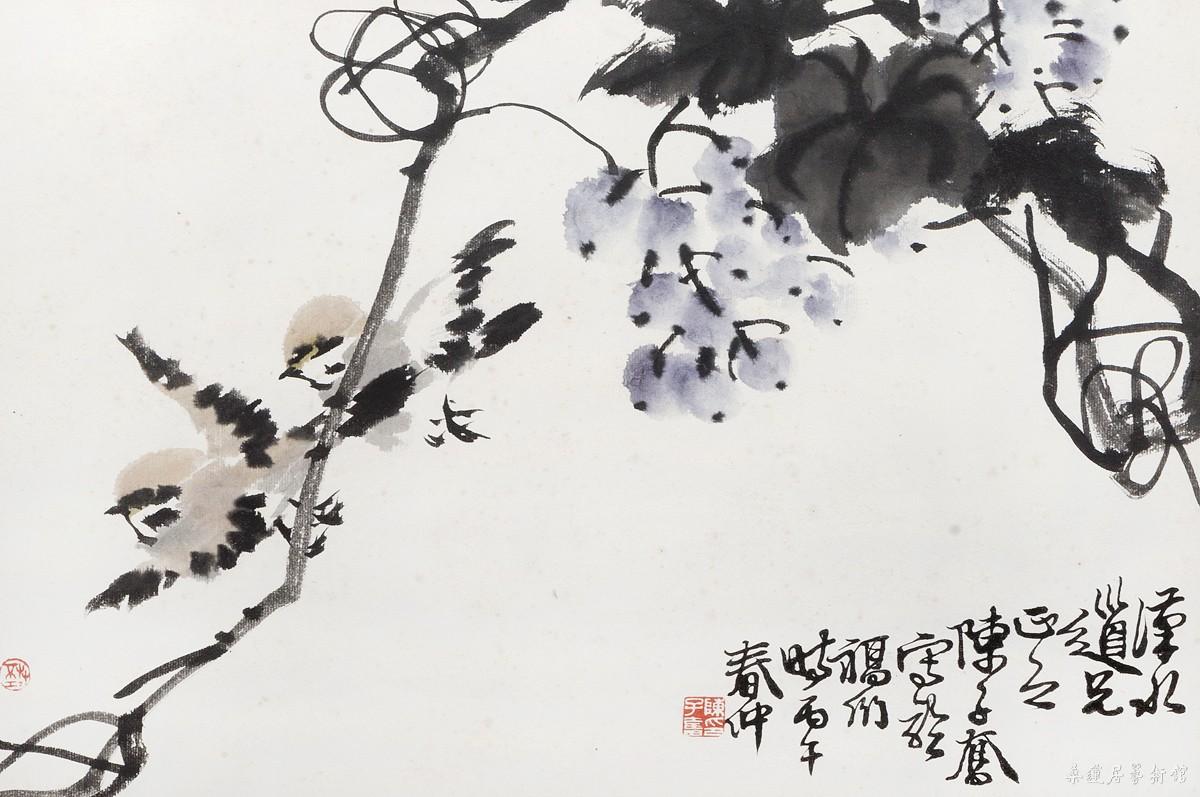 漢水
道兄
正之
陳子奮
寫於
福州
時丙午
春仲
陳子奮
桑蓮居藝術館